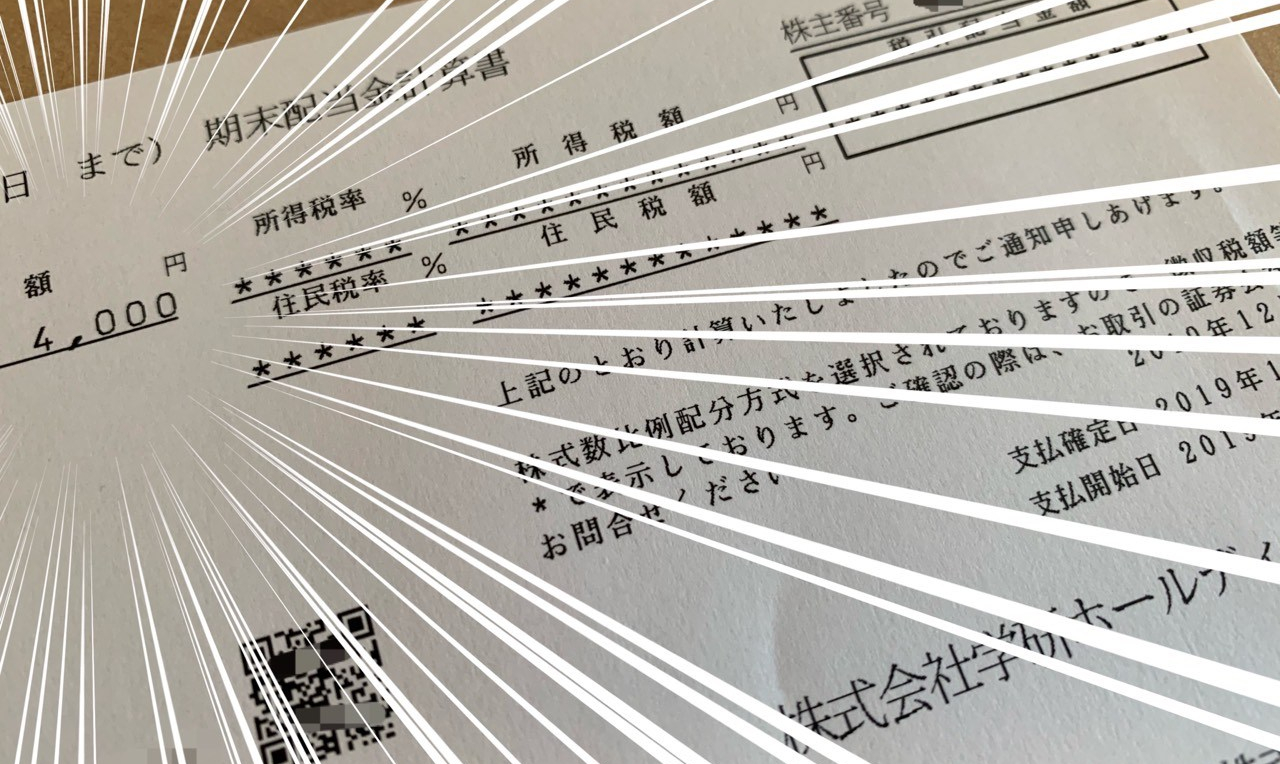 株主番号
税引配当金額
日 まで) 期末配当金計算書
円
所得税額
************
円
所得税率 %
******
住民税額
************
額 円
4,000
住民税率 %
******
上記のとおり計算いたしましたのでご通知申しあげます。
株式数比例配分方式を選択されておりますので、徴収税額等
*で表示しております。ご確認の際は、お取引の証券会
お問合せください
年12
支払確定日 2019年1
支払開始日 2019
株式会社学研ホールディ